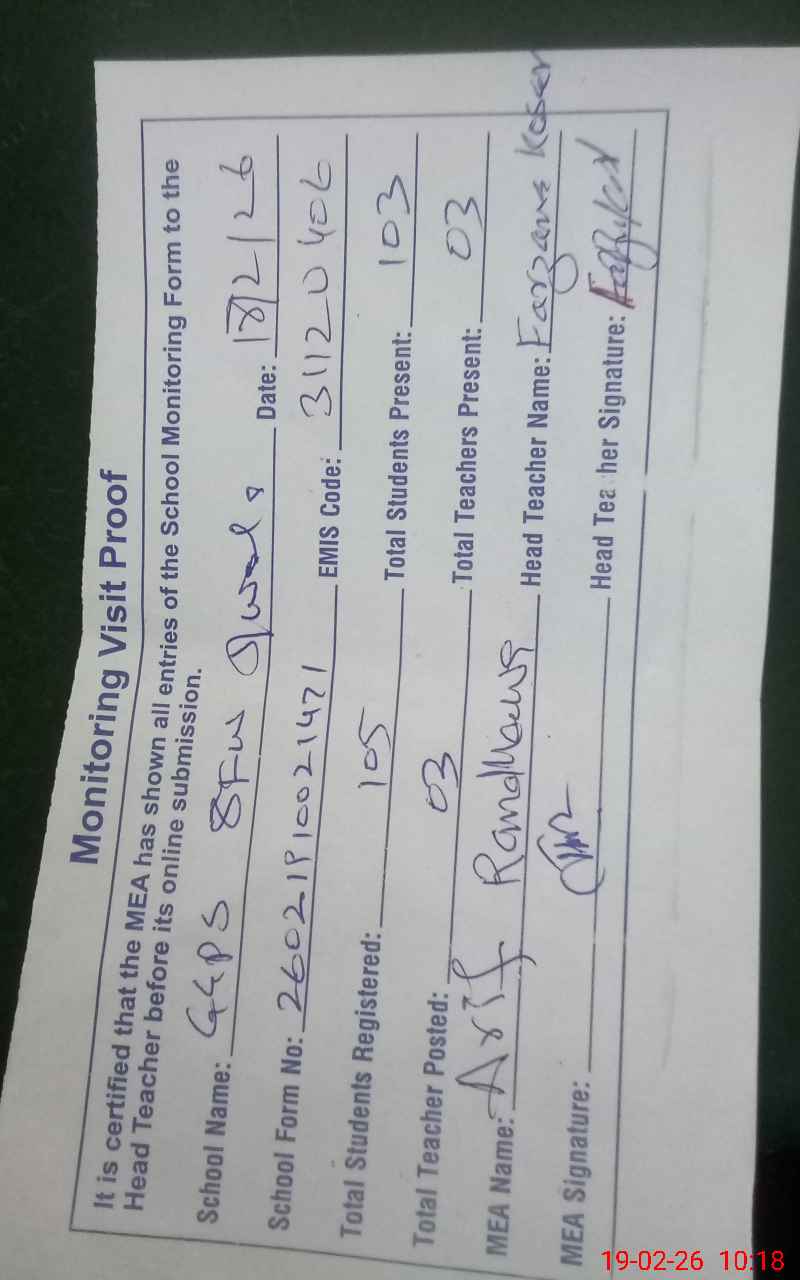 Monitoring Visit Proof
It is certified that the MEA has shown all entries of the School Monitoring Form to the
Head Teacher before its online submission.
School Name: GGPS 8FW Date: 18/2/26
School Form No: EMIS Code: 31120406
Total Students Registered: 105 Total Students Present: 103
Total Teacher Posted: 03 Total Teachers Present: 03
MEA Name: Arif Randhawa Head Teacher Name: Farzana Kosar
MEA Signature: Head Teacher Signature:
19-02-26 10:18